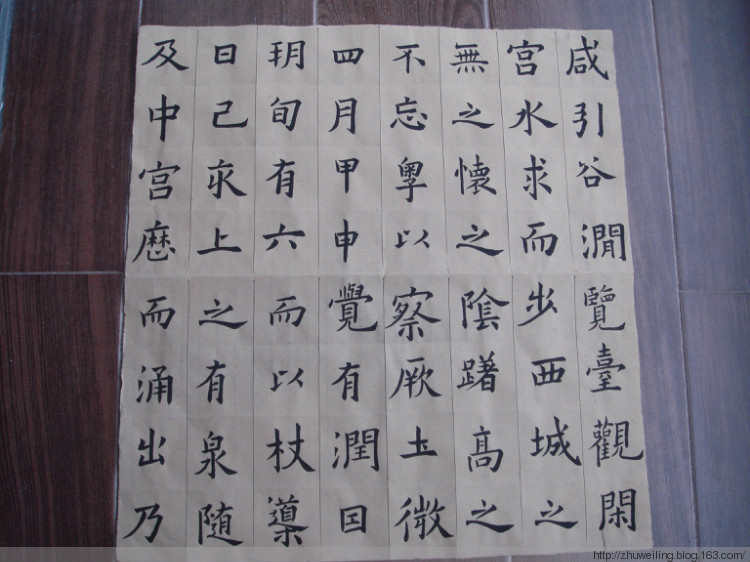 咸引谷澗
宮水求而
無之懷之
不忘粵以
四月甲申
朔旬有六
日己亥上
及中宮歷
覽臺觀閑
步西城之
陰躇高之
察厥土微
覺有潤因
而以杖導
之有泉隨
而涌出乃
http://zhuweiling.blog.163.com/